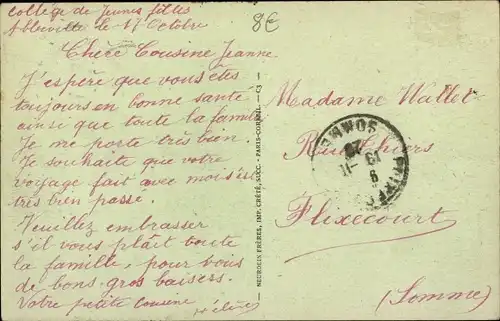 Collège de Jeunes filles
Abbeville le 17 Octobre
8€
Chère Cousine Jeanne
J'espère que vous êtes
toujours en bonne santé
ainsi que toute la famille
Je me porte très bien.
Je souhaite que votre
voyage fait avec
très bien passé.
Veuillez embrasser
s'il vous plaît toute
la famille, pour vous
de bons gros baisers.
Votre petite cousine
Hélène
NEURDEIN FRÈRES, IMP. CRÉTÉ, SUCC. - PARIS-CORBEIL - C3
Madame Wallet
Rue Thiers
Flixecourt
(Somme)
SOMME